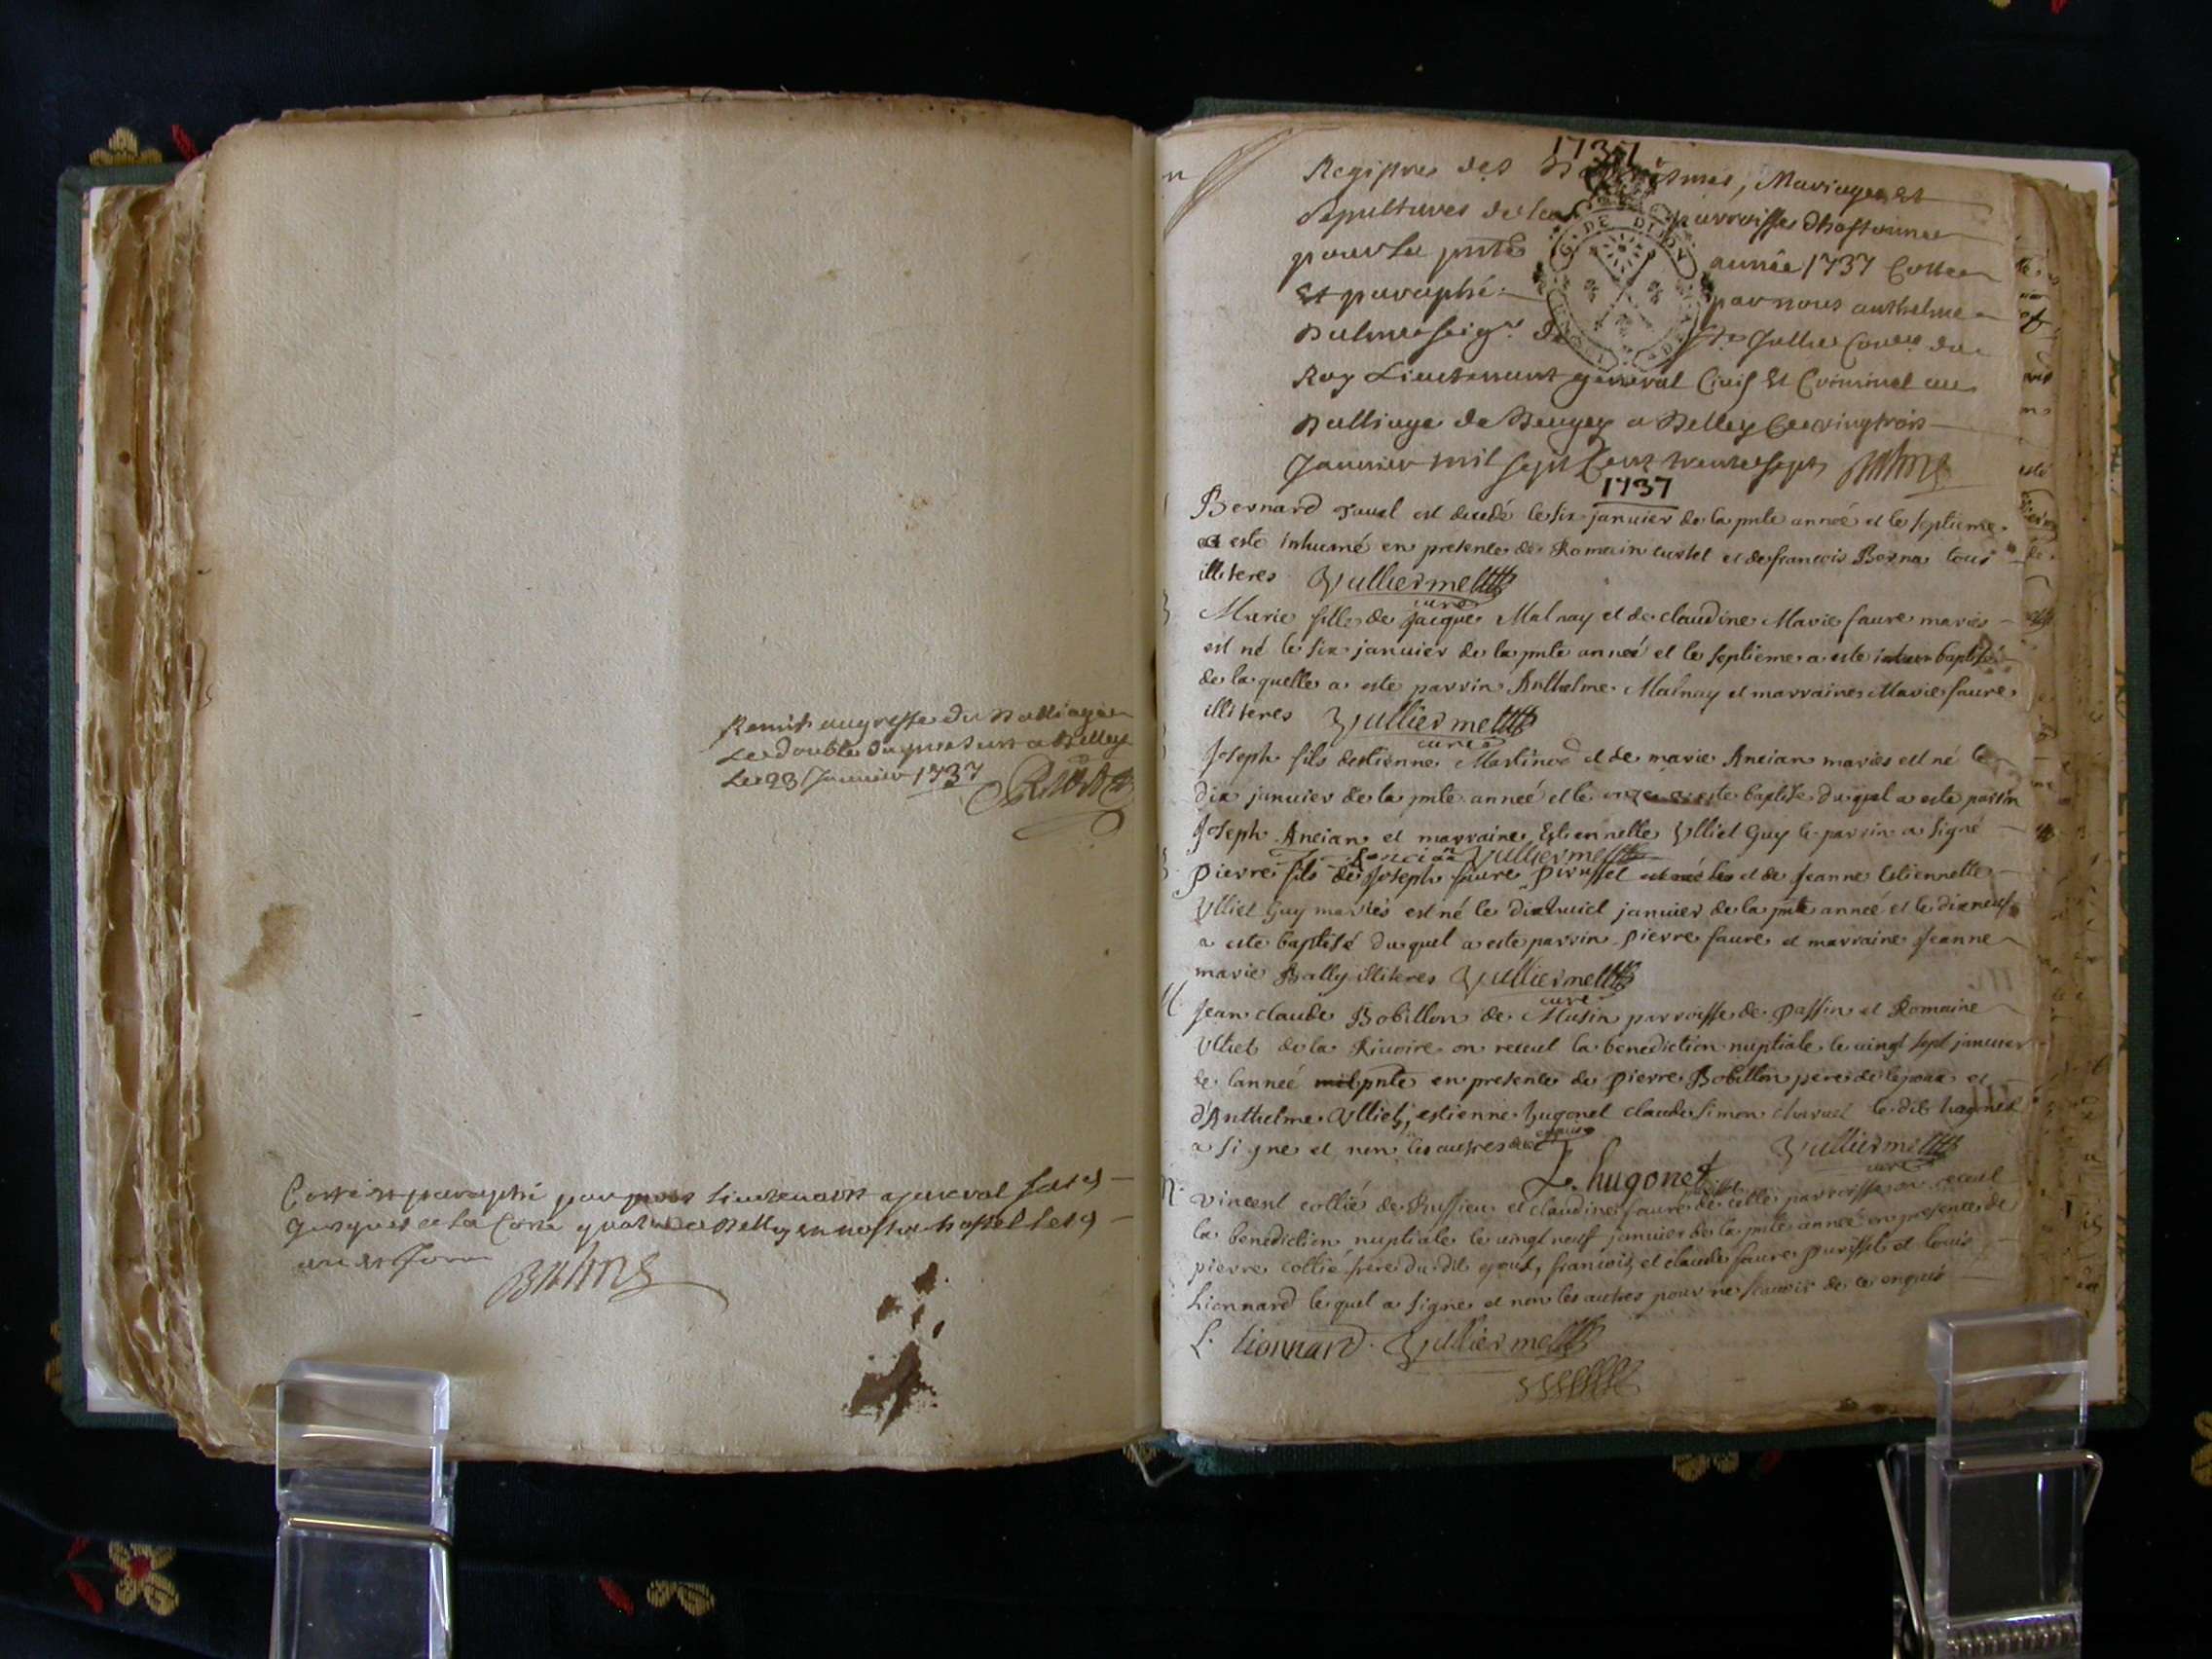 Remis au greffe du Balliage
Le double du present a Belley
Le 23 Janvier 1737
Cotté et paraphé par nous Lieutenant general
a Belley en nostre hostel les
an et jour
Balme
1737
Registre des Baptesmes, Mariages et
sepultures de la parroisse
pour la pnte année 1737 Cottée
Et paraphé par nous anthelme
Balme seigr de Ste Jullie Coner du
Roy Lieutenant general Civil Et Criminel au
Balliage de Beugey a Belley Ce vingtrois
Janvier mil sept Cent trente sept Balme
1737
Bernard est decedé le six janvier de la pnte anneé et le septieme
a esté inhumé en presence de Romain et de francois Berna tous
illiteres Vulliermet
curé
Marie fille de jacque Malnay et de claudine Marie faure mariés
est né le six janvier de la pnte anneé et le septieme a este baptisé
de la quelle a este parrin Anthelme Malnay et marraine Marie faure
illiteres Vulliermet
curé
Joseph fils destienne Martinod et de marie Ancian mariés est né le
dix janvier de la pnte anneé et le onze a este baptise du quel a este parrin
Joseph Ancian et marraine Estiennette Ulliet Guy le parrin a signé
J Ancian Vulliermet
pierre fils de Joseph faure et de Jeanne Estiennette
Ulliet Guy mariés est né le dixhuict janvier de la pnte anneé et le dixneuf
a este baptisé du quel a este parrin pierre faure et marraine Jeanne
marie Bally illiteres Vulliermet
curé
Jean claude Bobillon de Musin parroisse de passin et Romaine
Ulliet de la Riuoire on receut la benediction nuptiale le uingt sept januier
de lanneé pnte en presence de pierre Bobillon pere de lepoux et
d'Anthelme Ulliet, estienne hugonet claude simon le dit hugonet
a signe et non les autres de ce enquis
E. hugonet Vulliermet
curé
vincent collié de Ruffieu et claudine faure de cette parroisse on receut
la benediction nuptiale le uingt neuf januier de la pnte anneé en presence de
pierre collié frere du dit epoux, francois et claude faure et louis
Lionnard le quel a signe et non les autres pour ne scauoir de ce enquis
L. Lionnard. Vulliermet